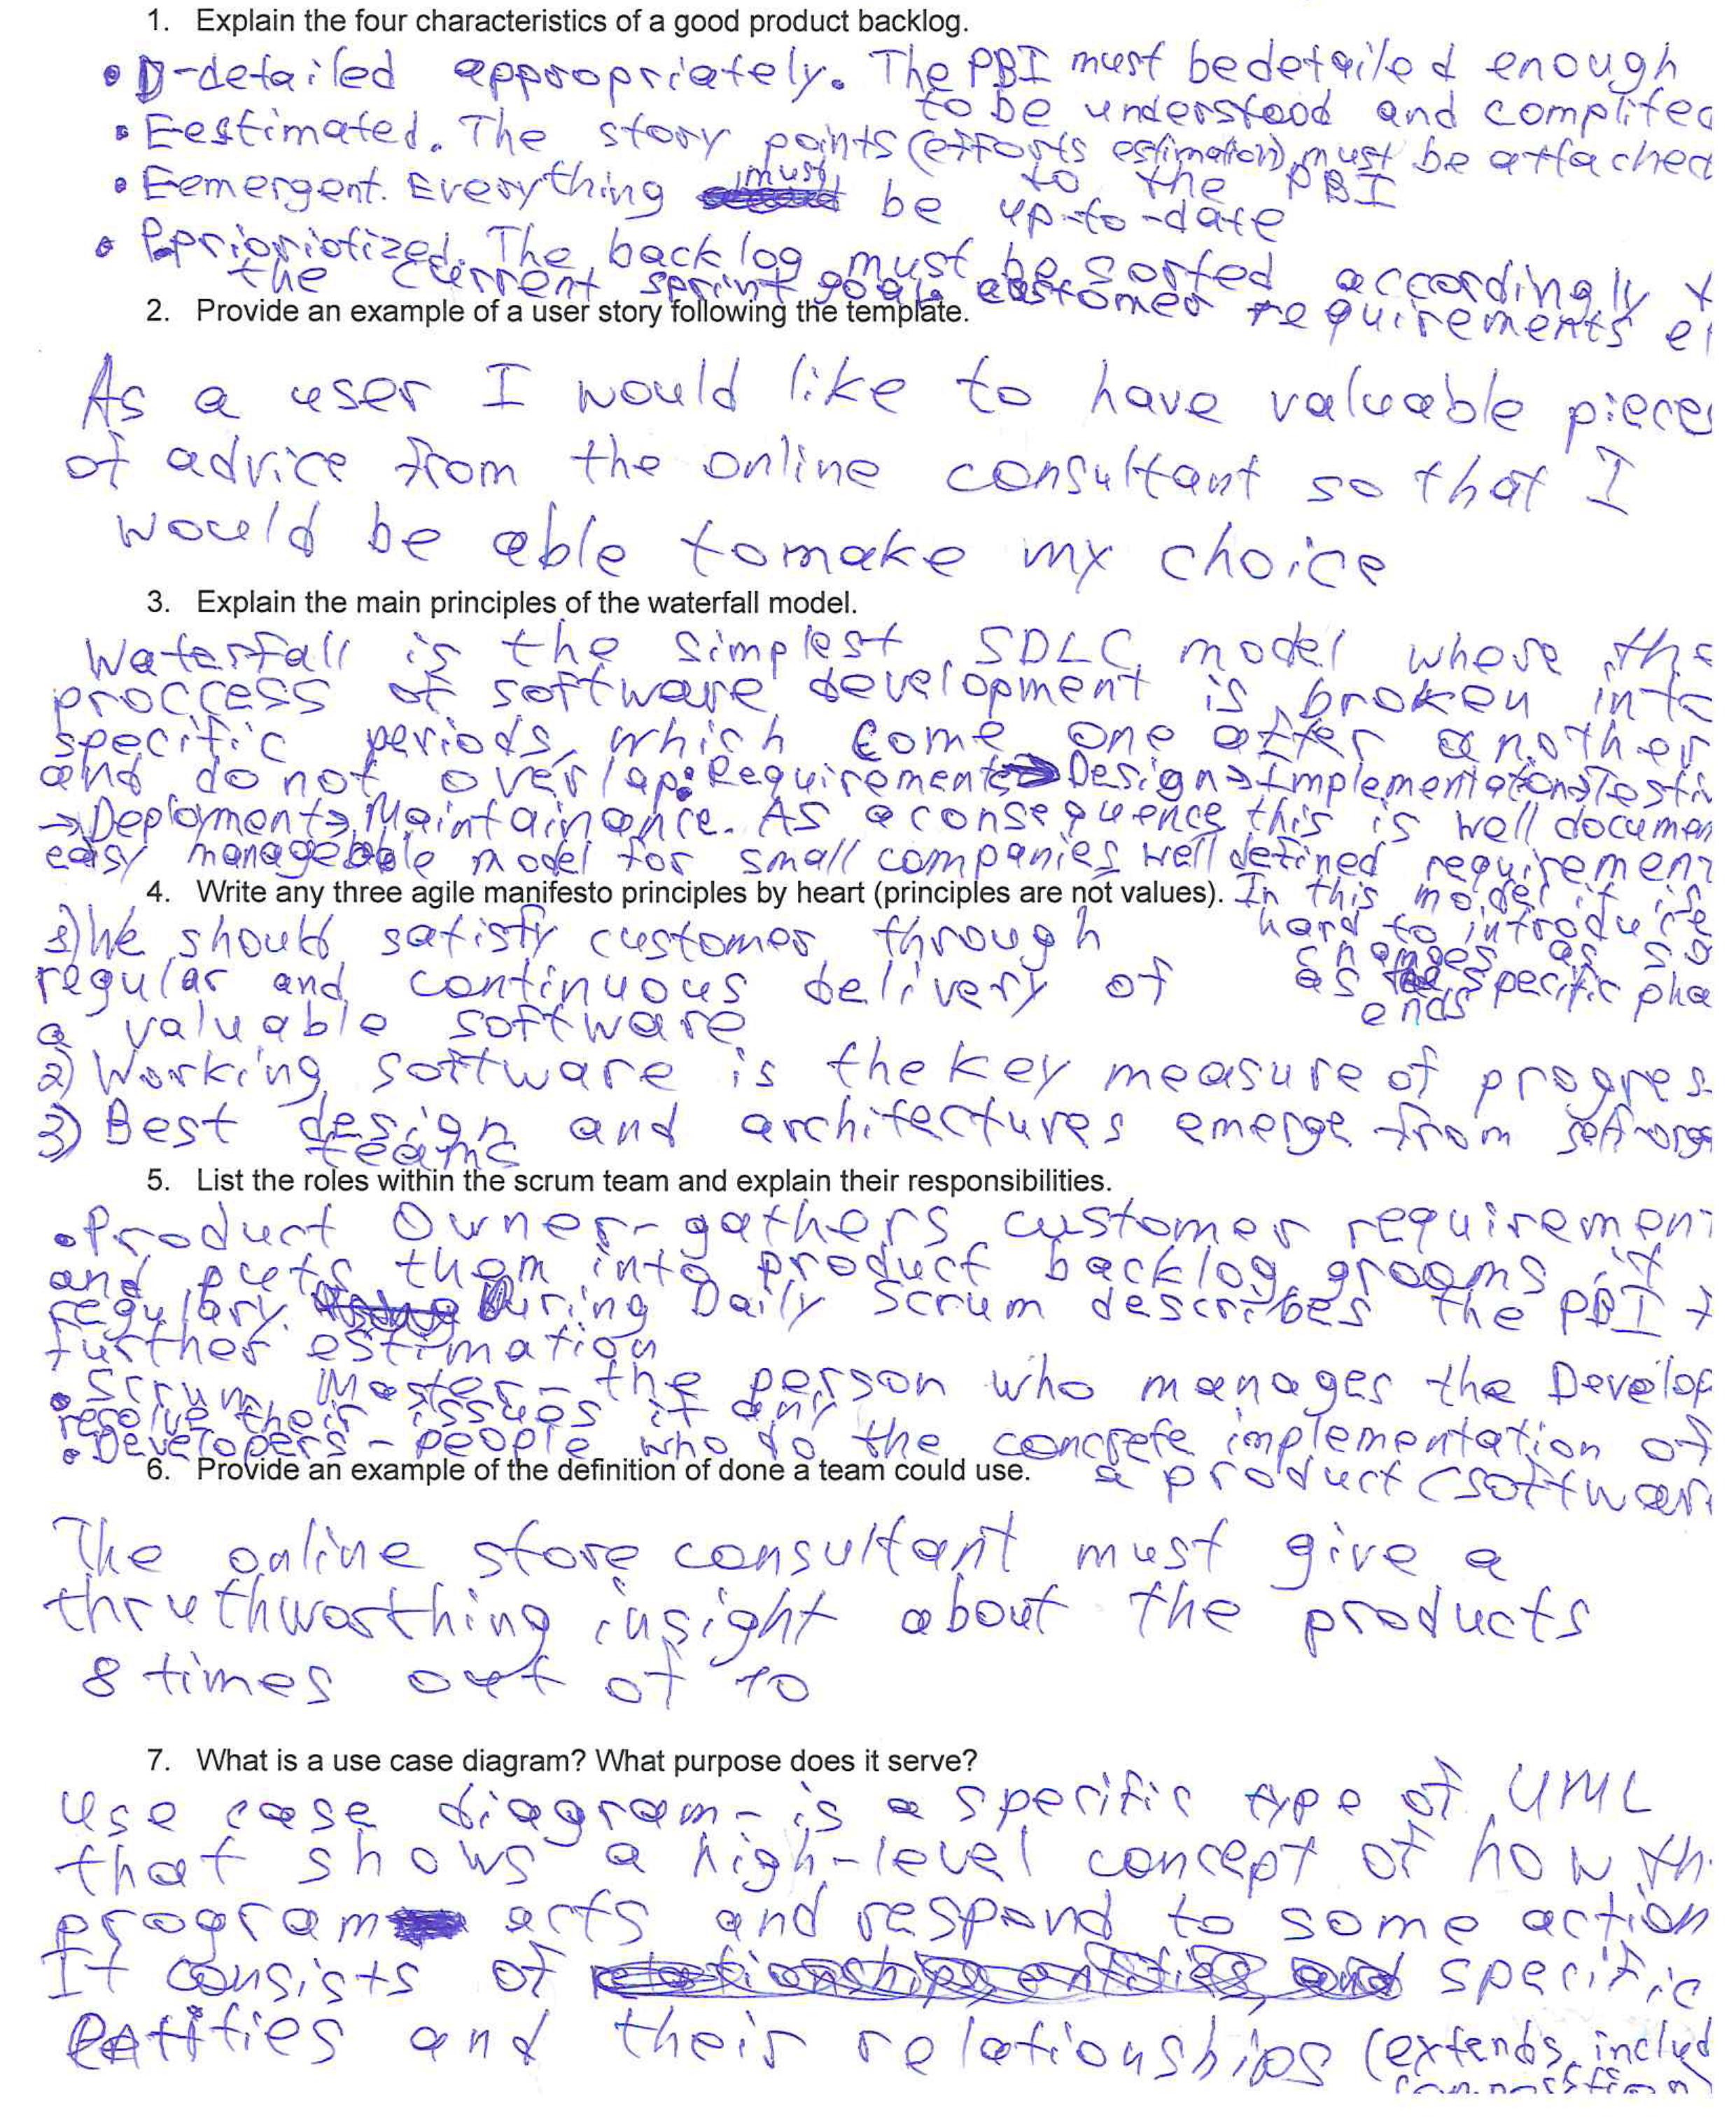 1. Explain the four characteristics of a good product backlog.
• D-detailed appropriately. The PBI must be detailed enough
to be understood and complited
• E-estimated. The story points (efforts estimation) must be attached
to the PBI
• E-emergent. Everything must be up-to-date
• P-prioriotized. The backlog must be sorted accordingly
the current sprint goal, customer requirements
2. Provide an example of a user story following the template.
As a user I would like to have valuable pieces
of advice from the online consultant so that I
would be able to make my choice
3. Explain the main principles of the waterfall model.
Waterfall is the simplest SDLC model where the
proccess of software development is broken into
specific periods, which come one after another
and do not overlap: Requirements → Design → Implementation → Testin
→ Deployment → Maintainance. As a consequence this is well documen
easy manageable model for small companies well defined requirement
In this model it is
hard to introduce
changes as so
as the specific pha
ends
4. Write any three agile manifesto principles by heart (principles are not values).
1) We should satisfy customer through
regular and continuous delivery of
a valuable software
2) Working software is the key measure of progres
3) Best design and architectures emerge from self-org
teams
5. List the roles within the scrum team and explain their responsibilities.
• Product Owner - gathers customer requirement
and puts them into product backlog, grooms it
regulary. During Daily Scrum describes the PBI
further estimation
• Scrum Master - the person who manages the Develop
resolve their issues if any
• Developers - people who do the concrete implementation of
a product (software
6. Provide an example of the definition of done a team could use.
The online store consultant must give a
thruthworthing insight about the products
8 times out of 10
7. What is a use case diagram? What purpose does it serve?
Use case diagram - is a specific type of UML
that shows a high-level concept of how th
program acts and respond to some action
It consists of specific
entities and their relationships (extends, includ